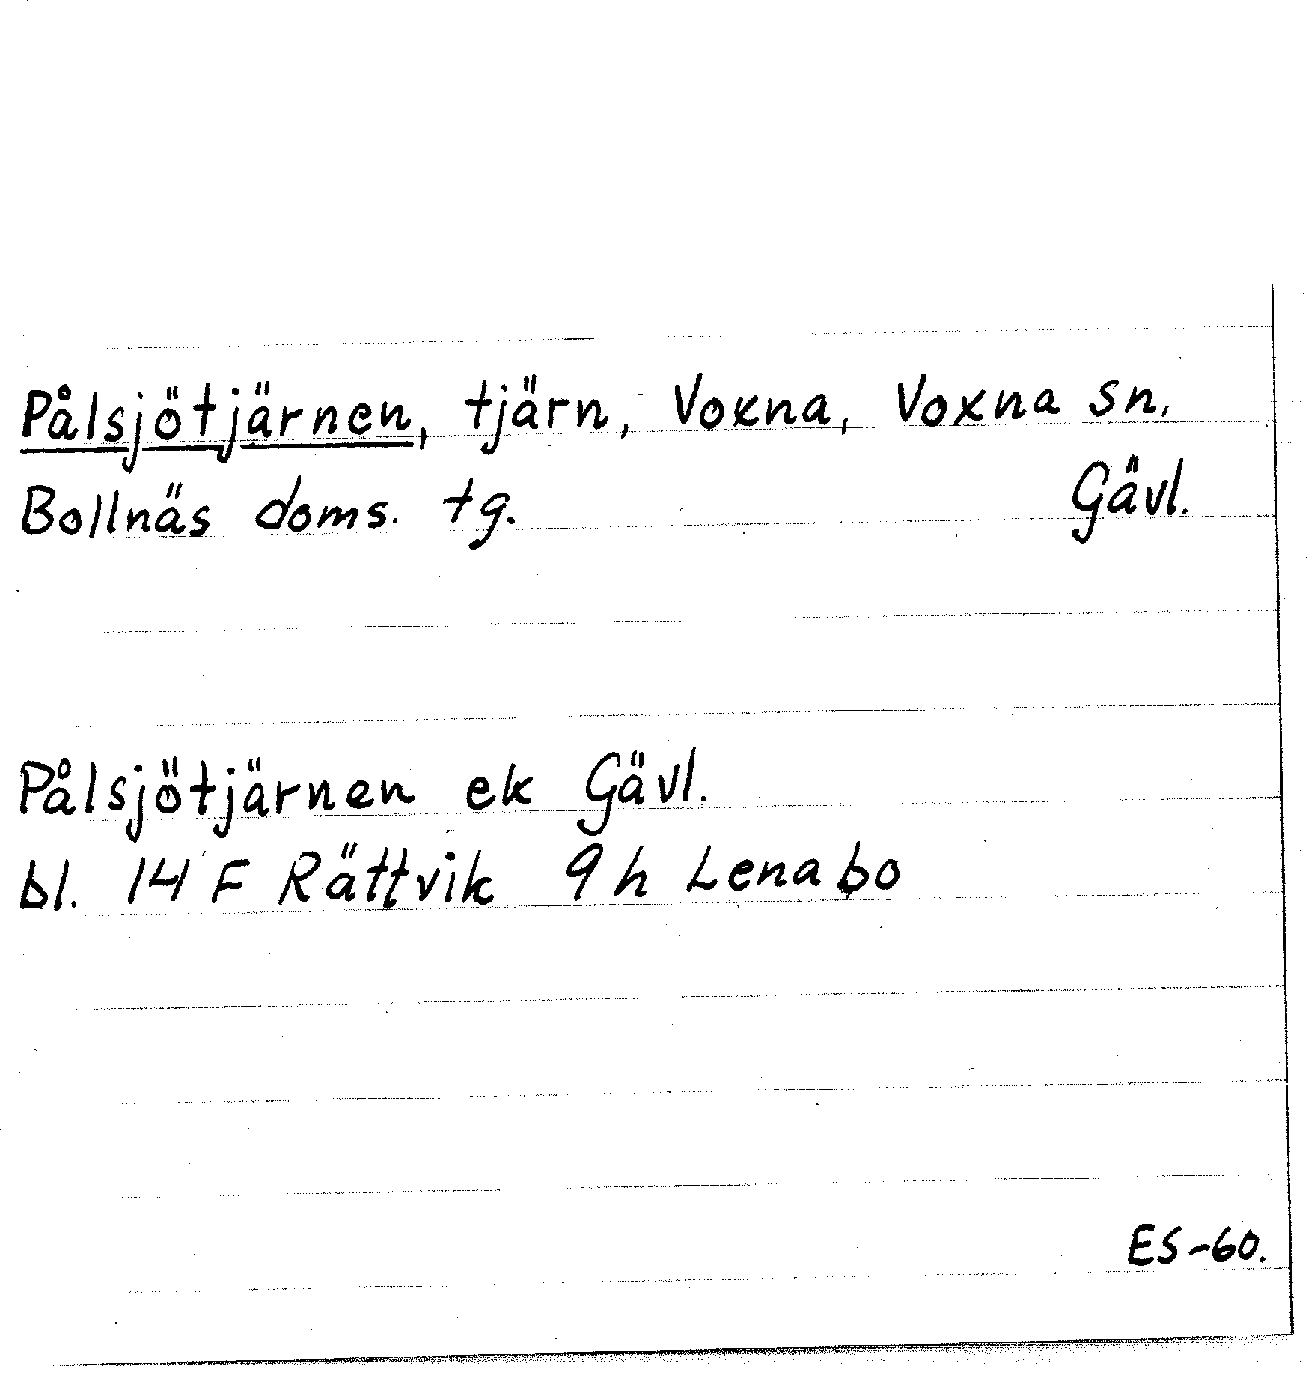 Pålsjötjärnen, tjärn, Voxna, Voxna sn.
Bollnäs doms. tg. Gävl.
Pålsjötjärnen ek Gävl.
bl. 14 F Rättvik 9 h Lenabo
ES-60.